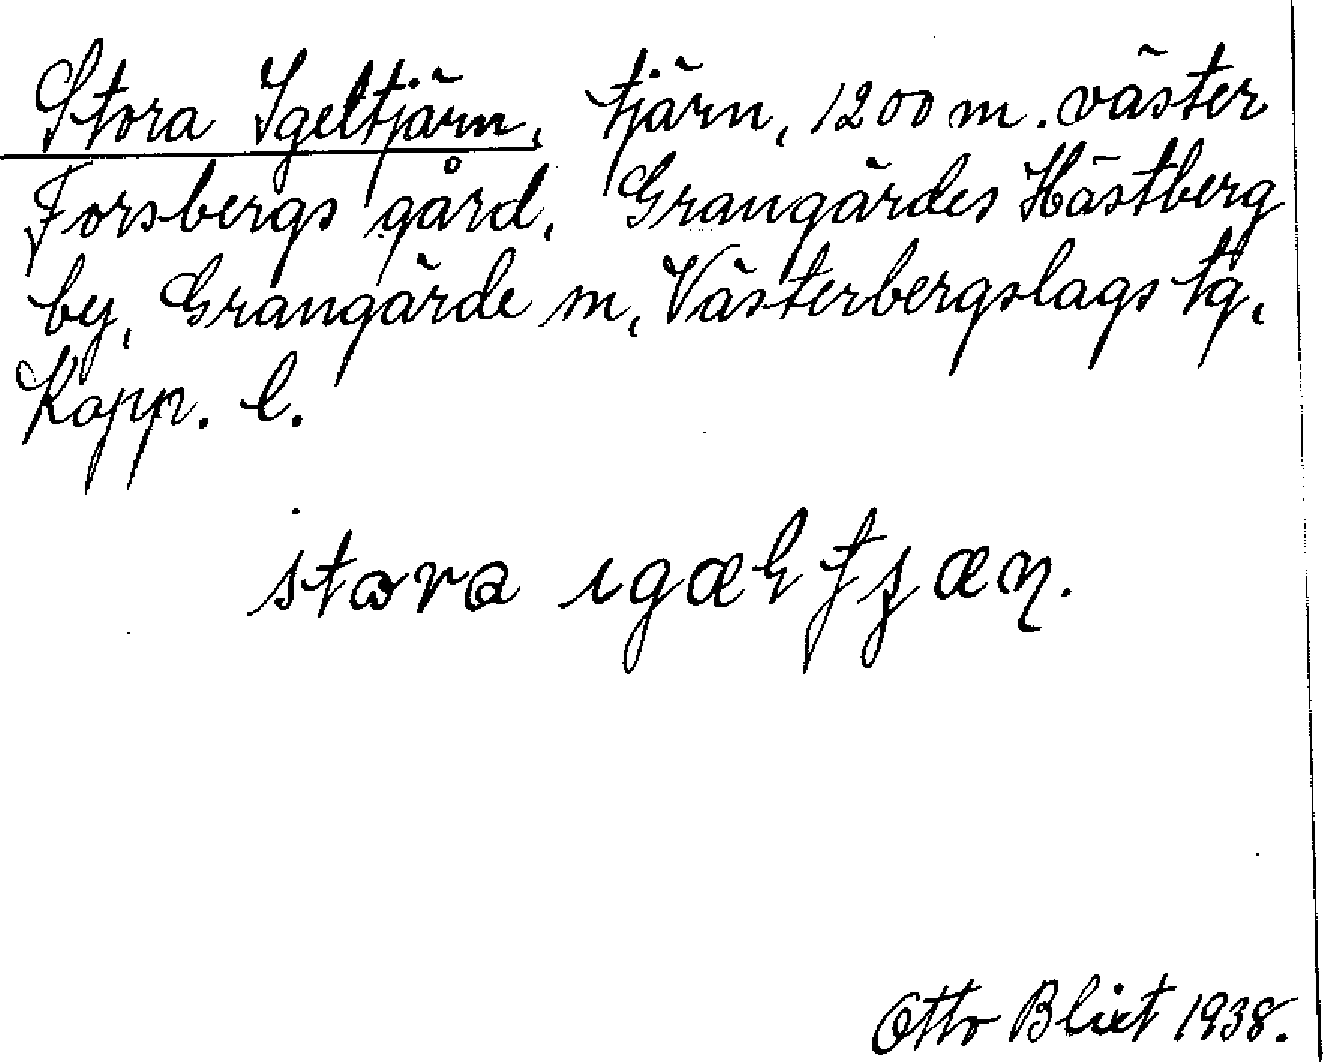 Stora Igeltjärn, tjärn, 1200 m. väster
Forsbergs gård, Grangärdes Hästberg
by, Grangärde sn, Västerbergslags tg,
Kopp. l.
stora igæltjæɳ.
Otto Blixt 1938.